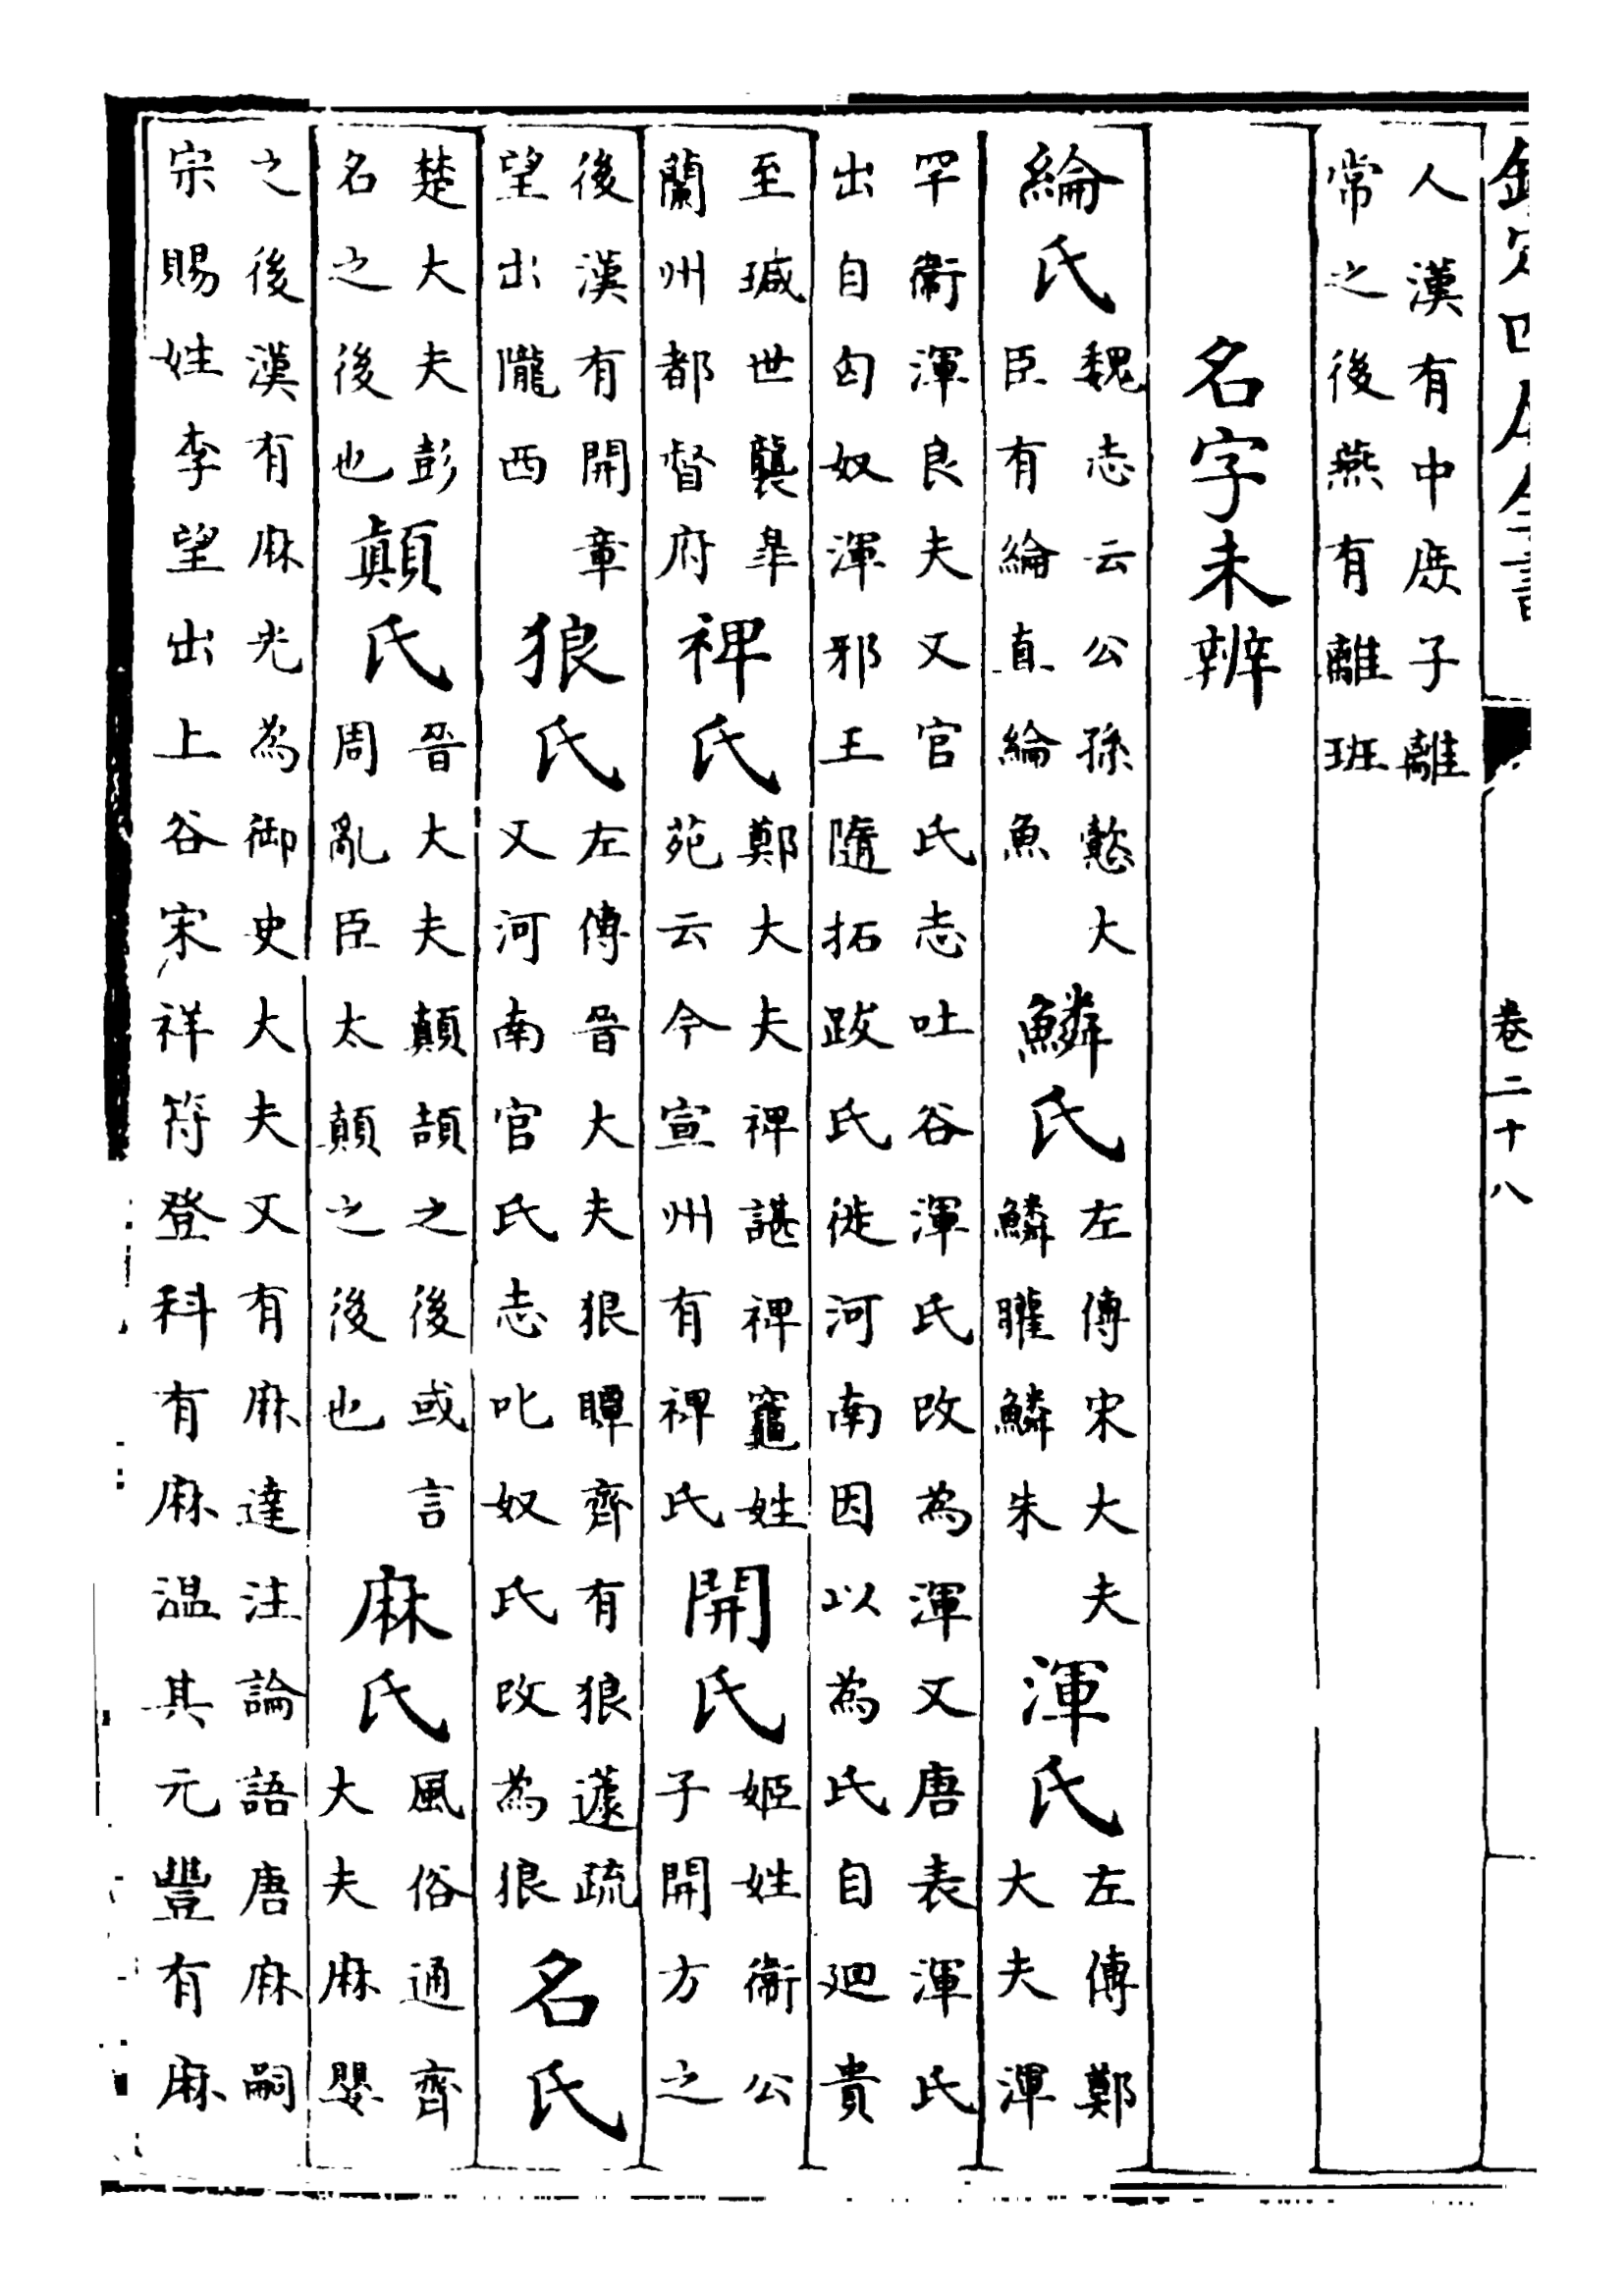 欽定四庫全書
卷二十八
人漢有中庶子離
常之後燕有離班
名字未辨
綸氏
魏志云公孫憼大
臣有綸直綸魚
鱗氏
左傳宋大夫
鱗矔鱗朱
渾氏
左傳鄭
大夫渾
罕衛渾良夫又官氏志吐谷渾氏改為渾又唐表渾氏
出自匈奴渾邪王隨拓跋氏徙河南因以為氏自廻貴
至瑊世襲臯
蘭州都督府
裨氏
鄭大夫裨諶裨竈姓
苑云今宣州有裨氏
開氏
姬姓衞公
子開方之
後漢有開章
望出隴西
狼氏
左傳晉大夫狼瞫齊有狼蘧疏
又河南官氏志叱奴氏改為狼
名氏
楚大夫彭
名之後也
顛氏
晉大夫顛頡之後或言
周亂臣太顛之後也
麻氏
風俗通齊
大夫麻嬰
之後漢有麻光為御史大夫又有麻達注論語唐麻嗣
宗賜姓李望出上谷宋祥符登科有麻温其元豐有麻